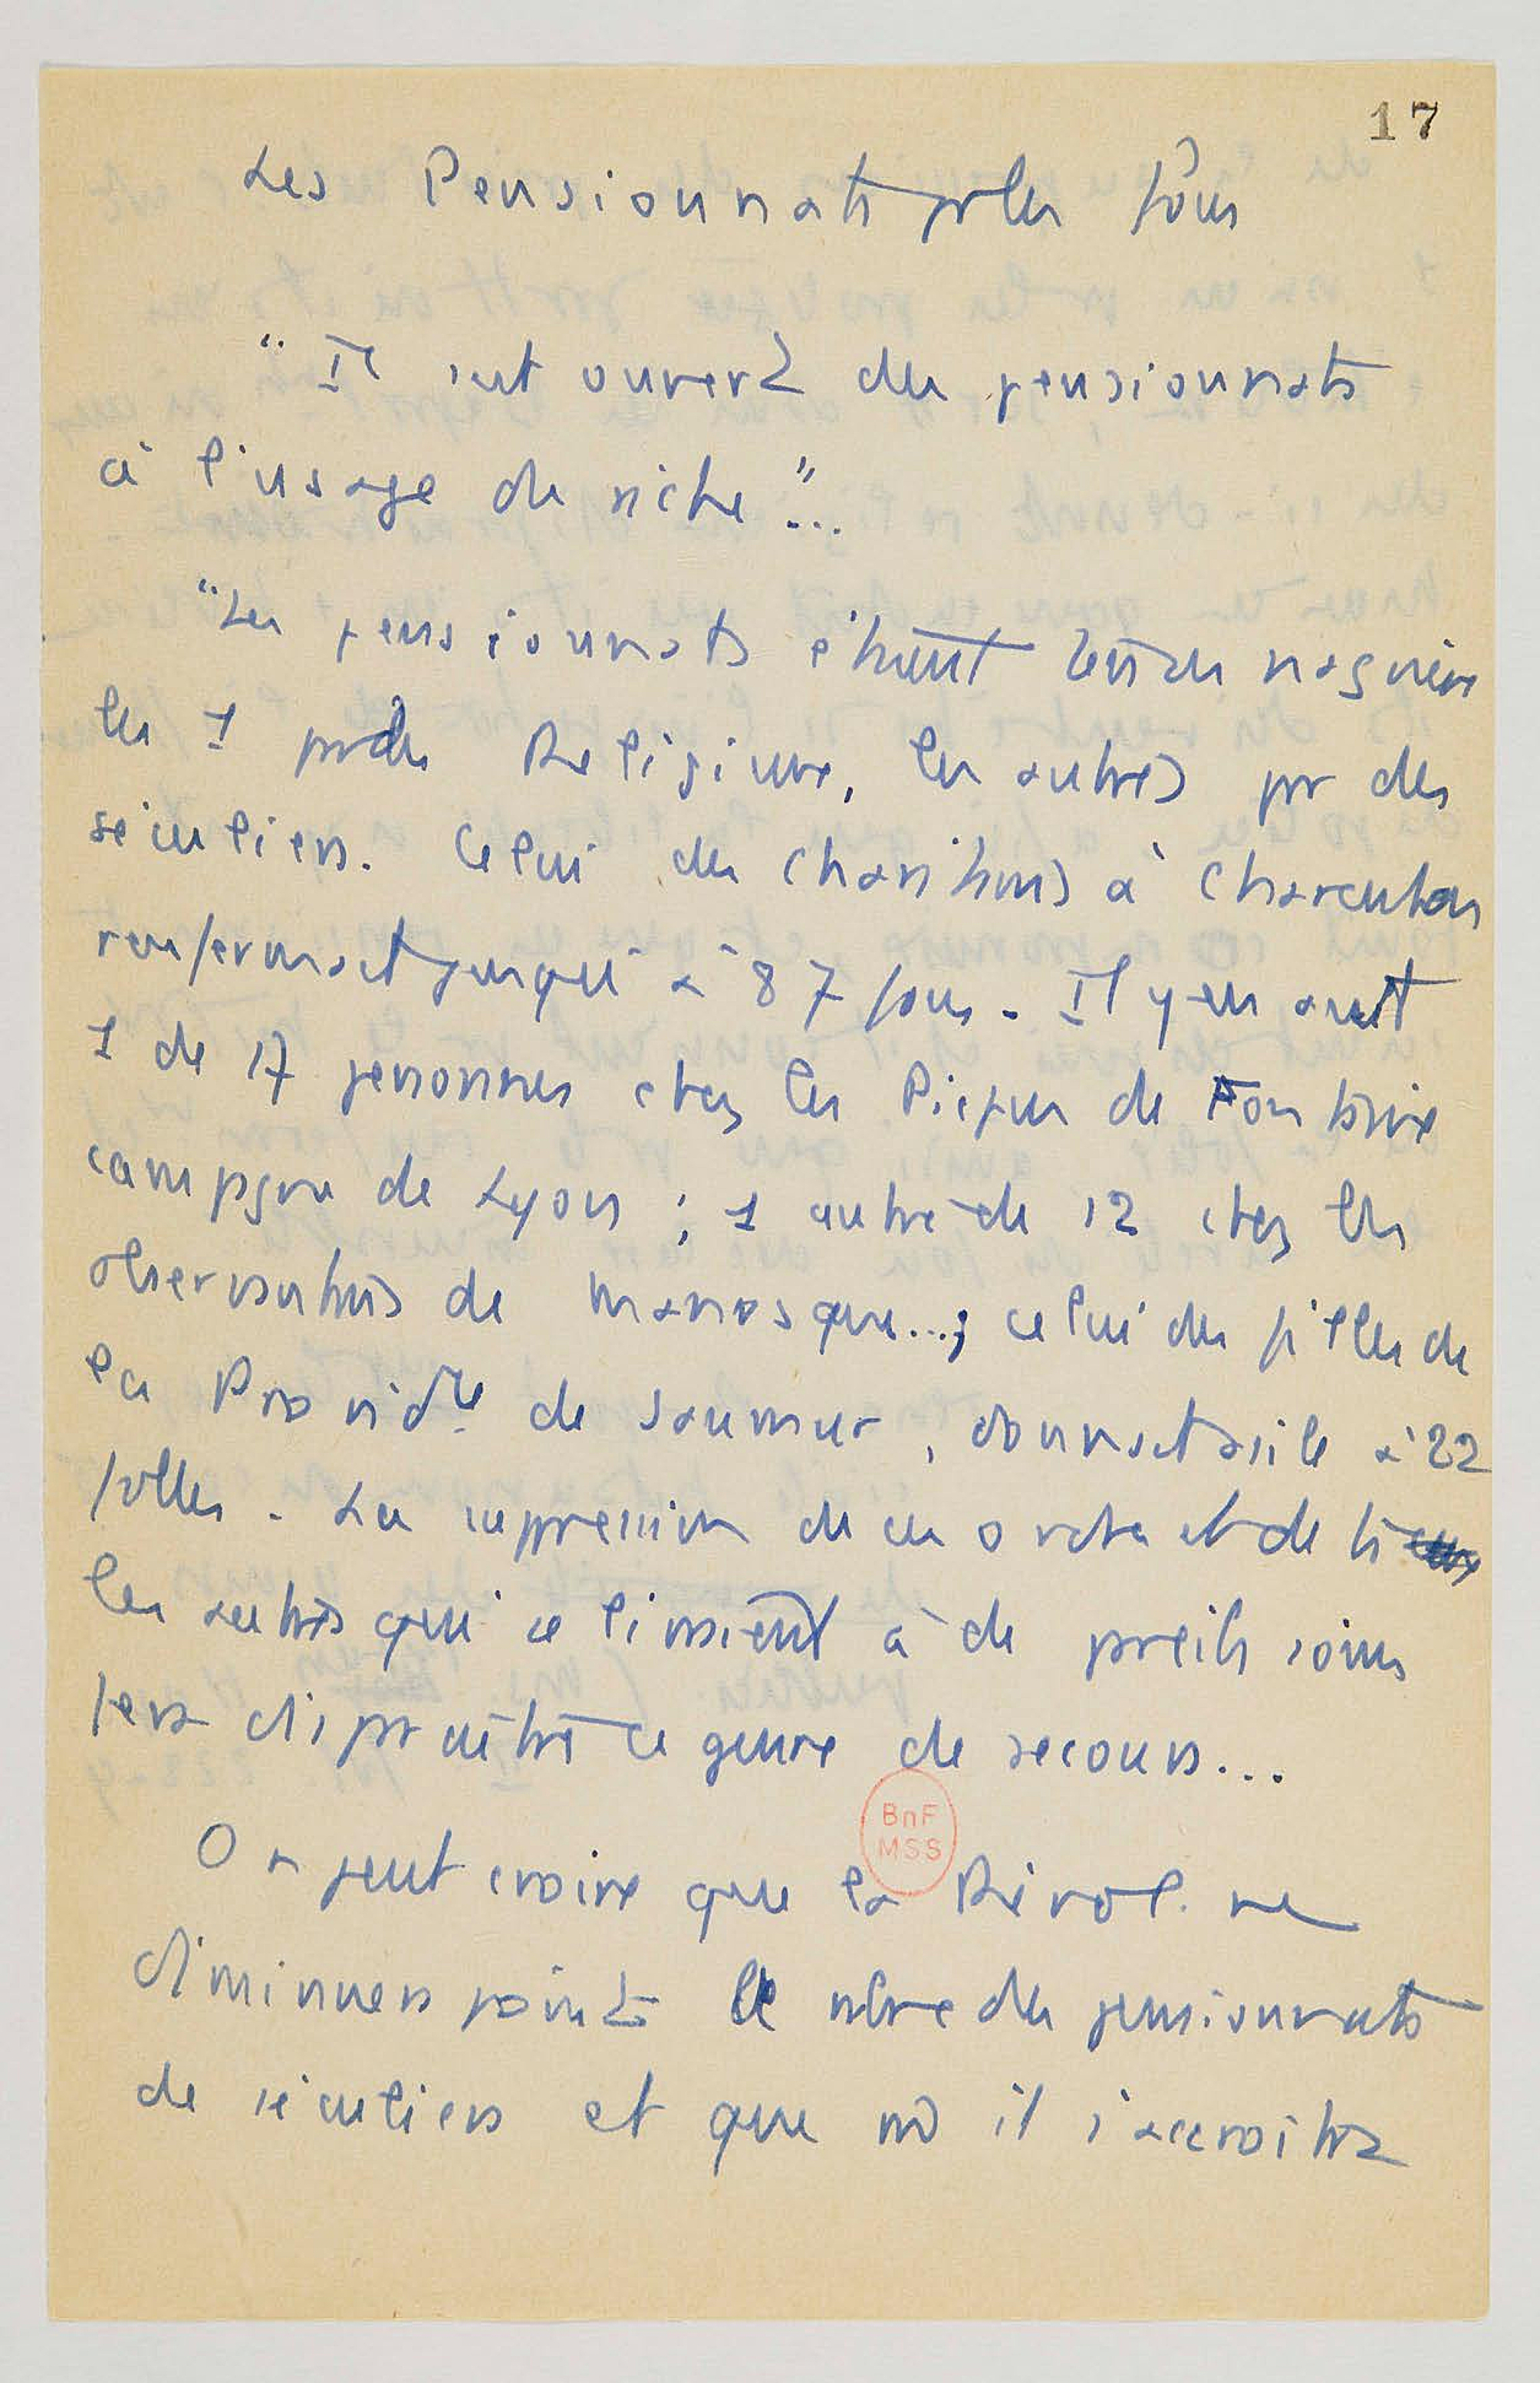 17
Les Pensionnats pr les fous
" Il est ouvert des pensionnats
à l'usage de riche "...
"Les pensionnats étaient tenus naguère
les 1 pr des Religieux, les autres pr des
séculiers. Celui des Charitains à Charenton
renfermait jusqu'à 87 fous. Il y en avait
1 de 17 personnes chez les Picpus de Fontaine
campgne de Lyon ; 1 autre de 12 chez les
observantins de Manosque...; celui des filles de
la Providce de Saumur, donnait asile à 22
folles. La suppression de ces ordres et de ts
les autres qui se livraient à de pareils soins
fera disparaître ce genre de secours...
On peut croire que la Révol. ne
diminuera point le nbre des pensionnats
de séculiers et que il s'accroîtra
BnF
MSS